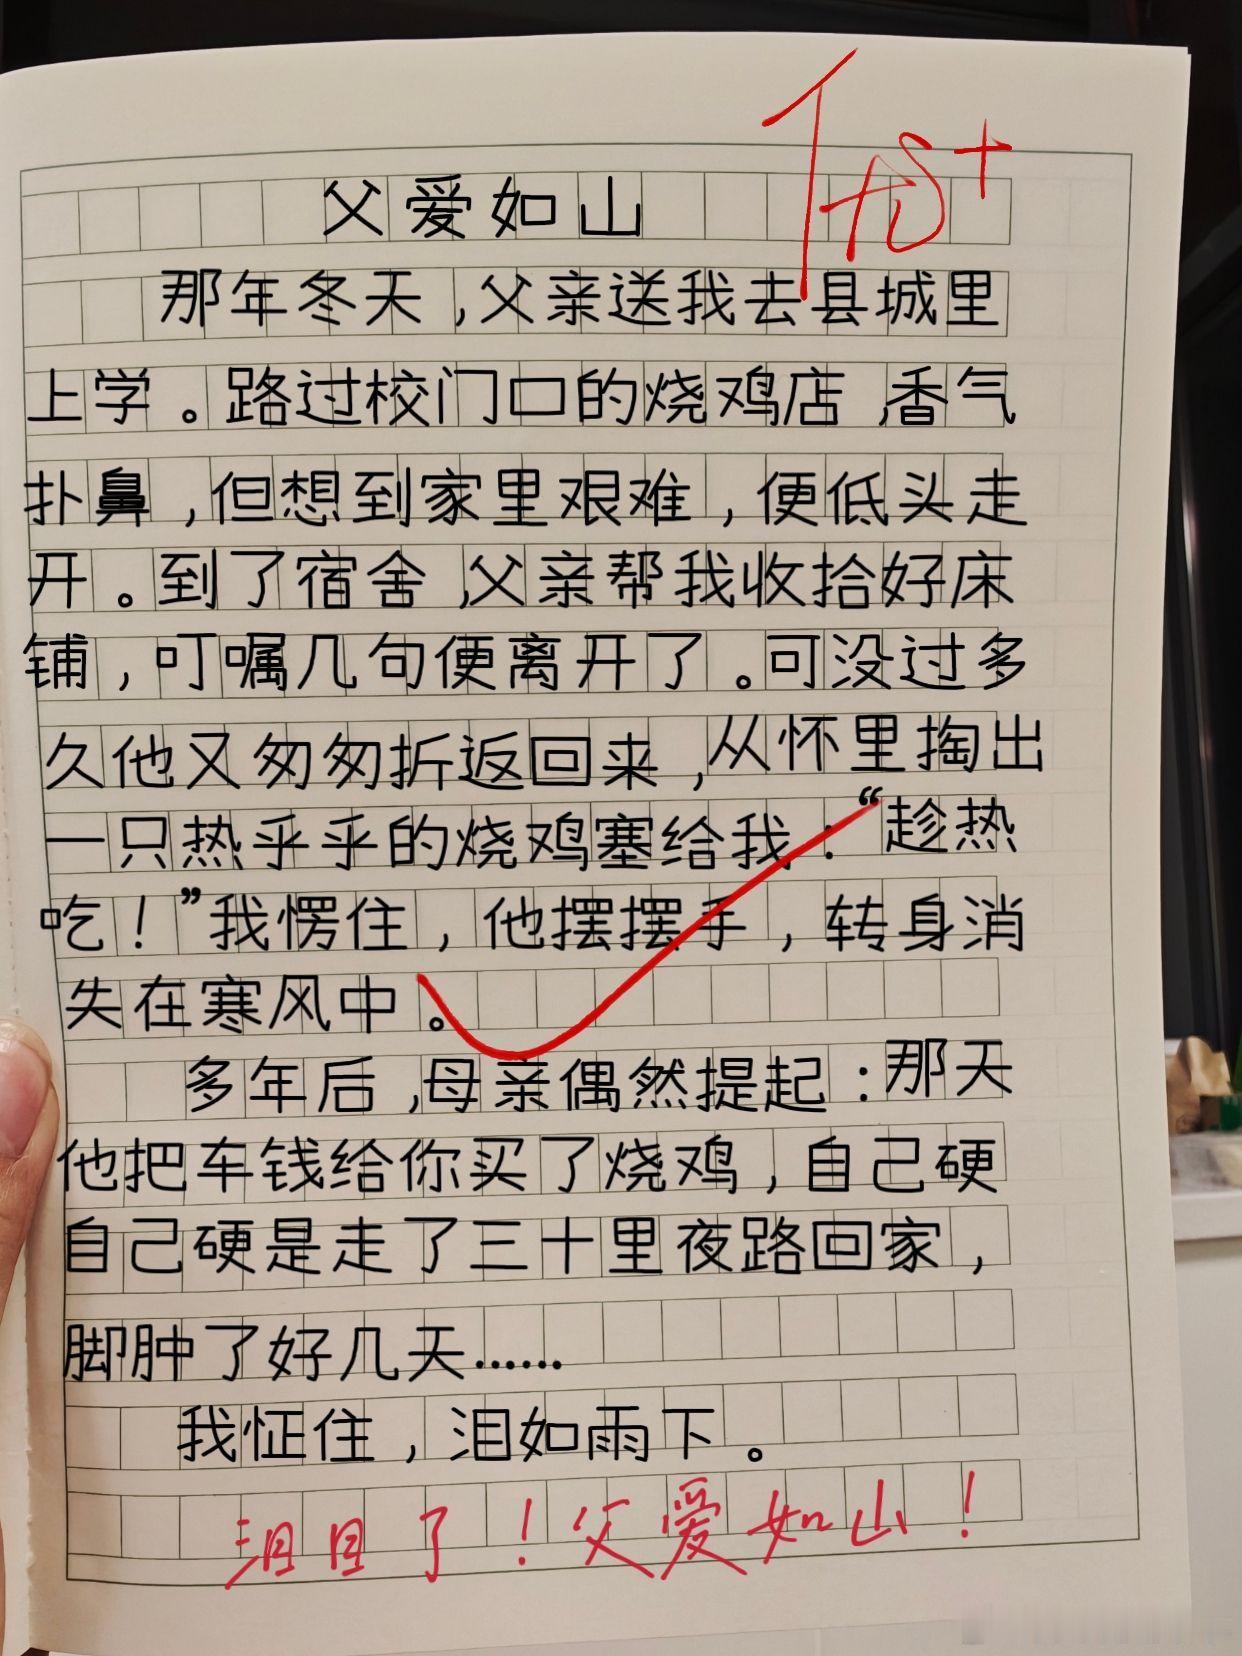 父爱如山
那年冬天，父亲送我去县城里
上学。路过校门口的烧鸡店，香气
扑鼻，但想到家里艰难，便低头走
开。到了宿舍，父亲帮我收拾好床
铺，叮嘱几句便离开了。可没过多
久他又匆匆折返回来，从怀里掏出
一只热乎乎的烧鸡塞给我：“趁热
吃！”我愣住，他摆摆手，转身消
失在寒风中。
多年后，母亲偶然提起：那天
他把车钱给你买了烧鸡，自己硬
自己硬是走了三十里夜路回家，
脚肿了好几天……
我怔住，泪如雨下。
泪目了！父爱如山！